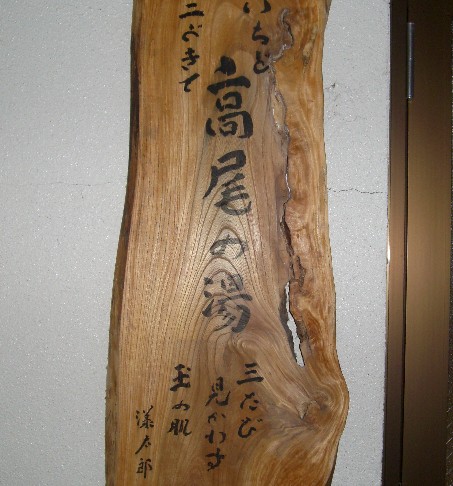 いちど
二どきて
高尾の湯
三たび
見かわす
玉の肌
漾太郎